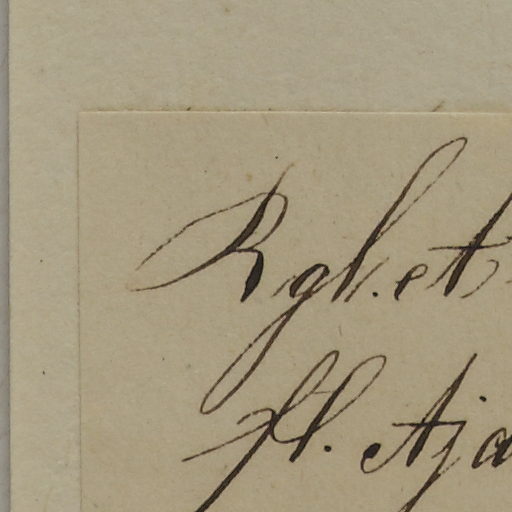 Rgl. et
fl. Aja